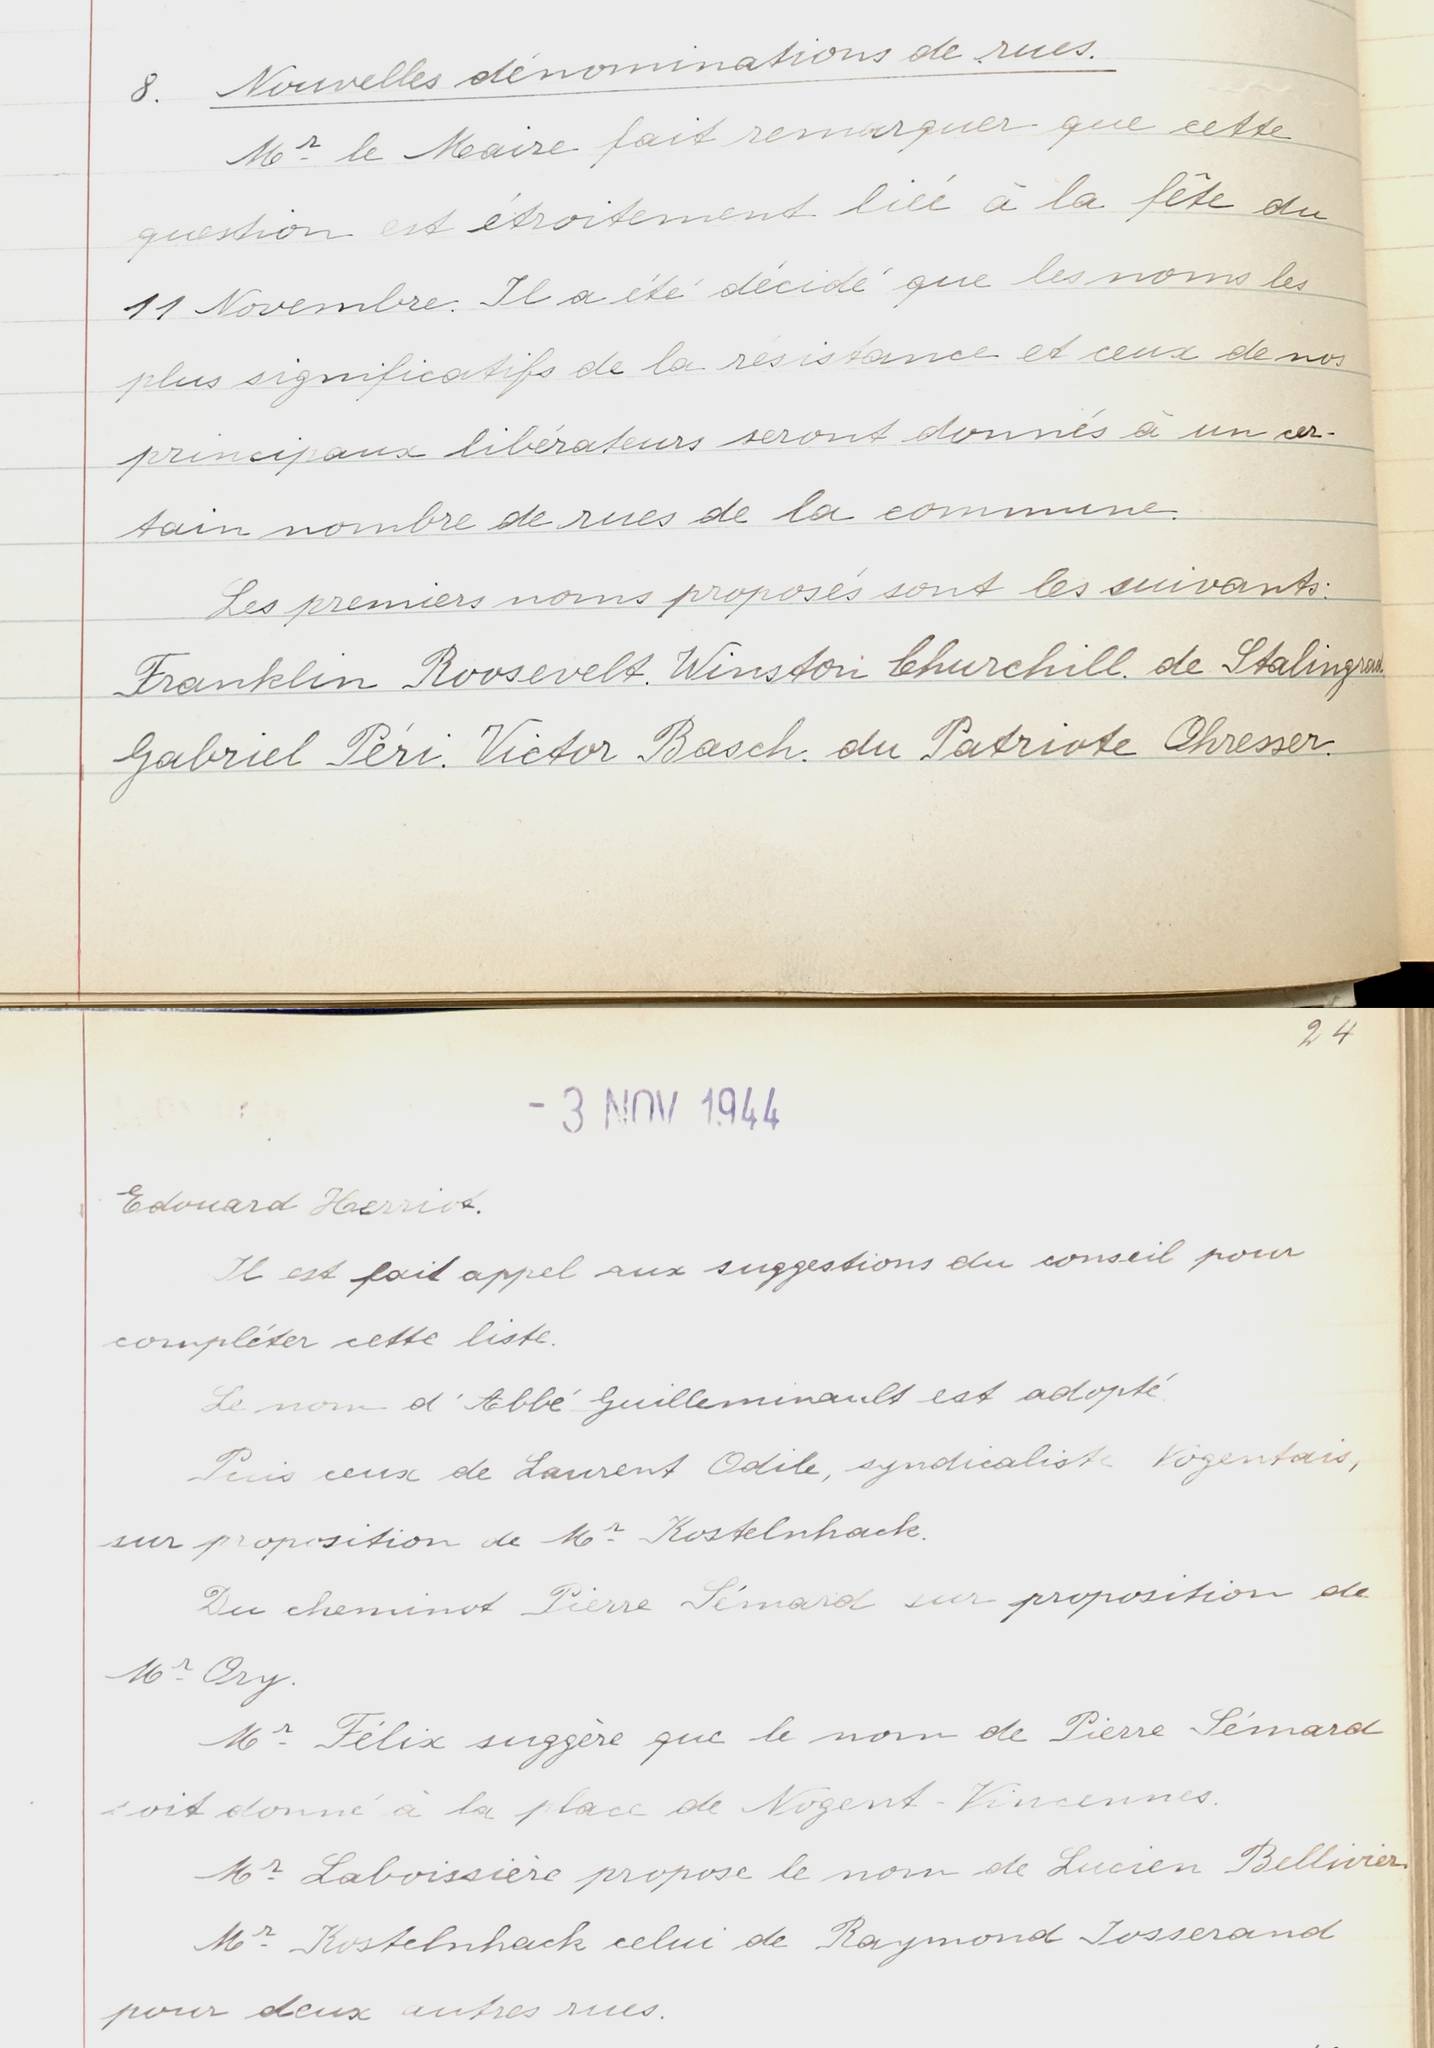 8. Nouvelles dénominations de rues.
Mr le Maire fait remarquer que cette
question est étroitement liée à la fête du
11 Novembre. Il a été décidé que les noms les
plus significatifs de la résistance et ceux de nos
principaux libérateurs seront donnés à un cer-
tain nombre de rues de la commune.
Les premiers noms proposés sont les suivants:
Franklin Roosevelt. Winston Churchill. de Stalingrad.
Gabriel Péri. Victor Basch. du Patriote Ohresser.
24
- 3 NOV 1944
Edouard Herriot.
Il est fait appel aux suggestions du conseil pour
compléter cette liste.
Le nom d'Abbé Guilleminault est adopté
Puis ceux de Laurent Odile, syndicaliste Nogentais,
sur proposition de Mr Kostelnhack.
Du cheminot Pierre Sémard sur proposition de
Mr Ory.
Mr Félix suggère que le nom de Pierre Sémard
soit donné à la place de Nogent-Vincennes.
Mr Laboissière propose le nom de Lucien Bellivier.
Mr Kostelnhack celui de Raymond Josserand
pour deux autres rues.